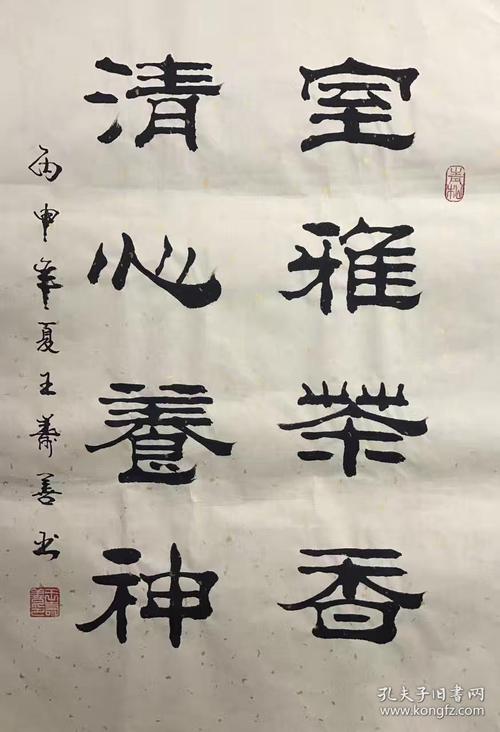 室雅茶香
清心養神
丙申年夏王壽善书
孔夫子旧书网
www.kongfz.com